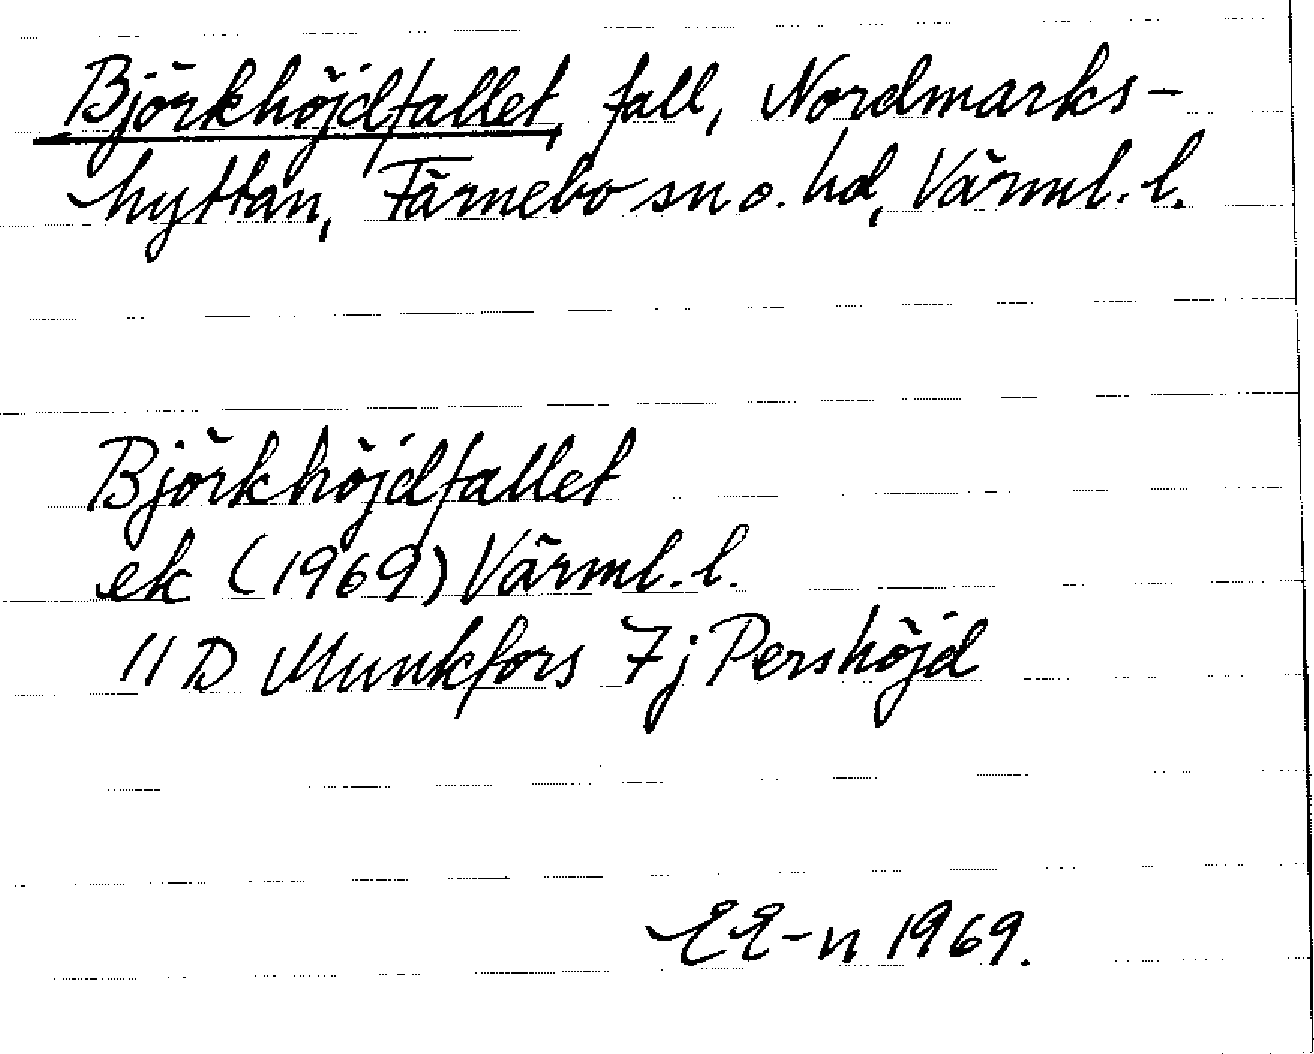 Björkhöjdfallet, fall, Nordmarks-
hyttan, Färnebo sn o. hd, Värml. l.
Björkhöjdfallet
ek (1969) Värml. l.
11 D Munkfors 7j Pershöjd
EE-n 1969.